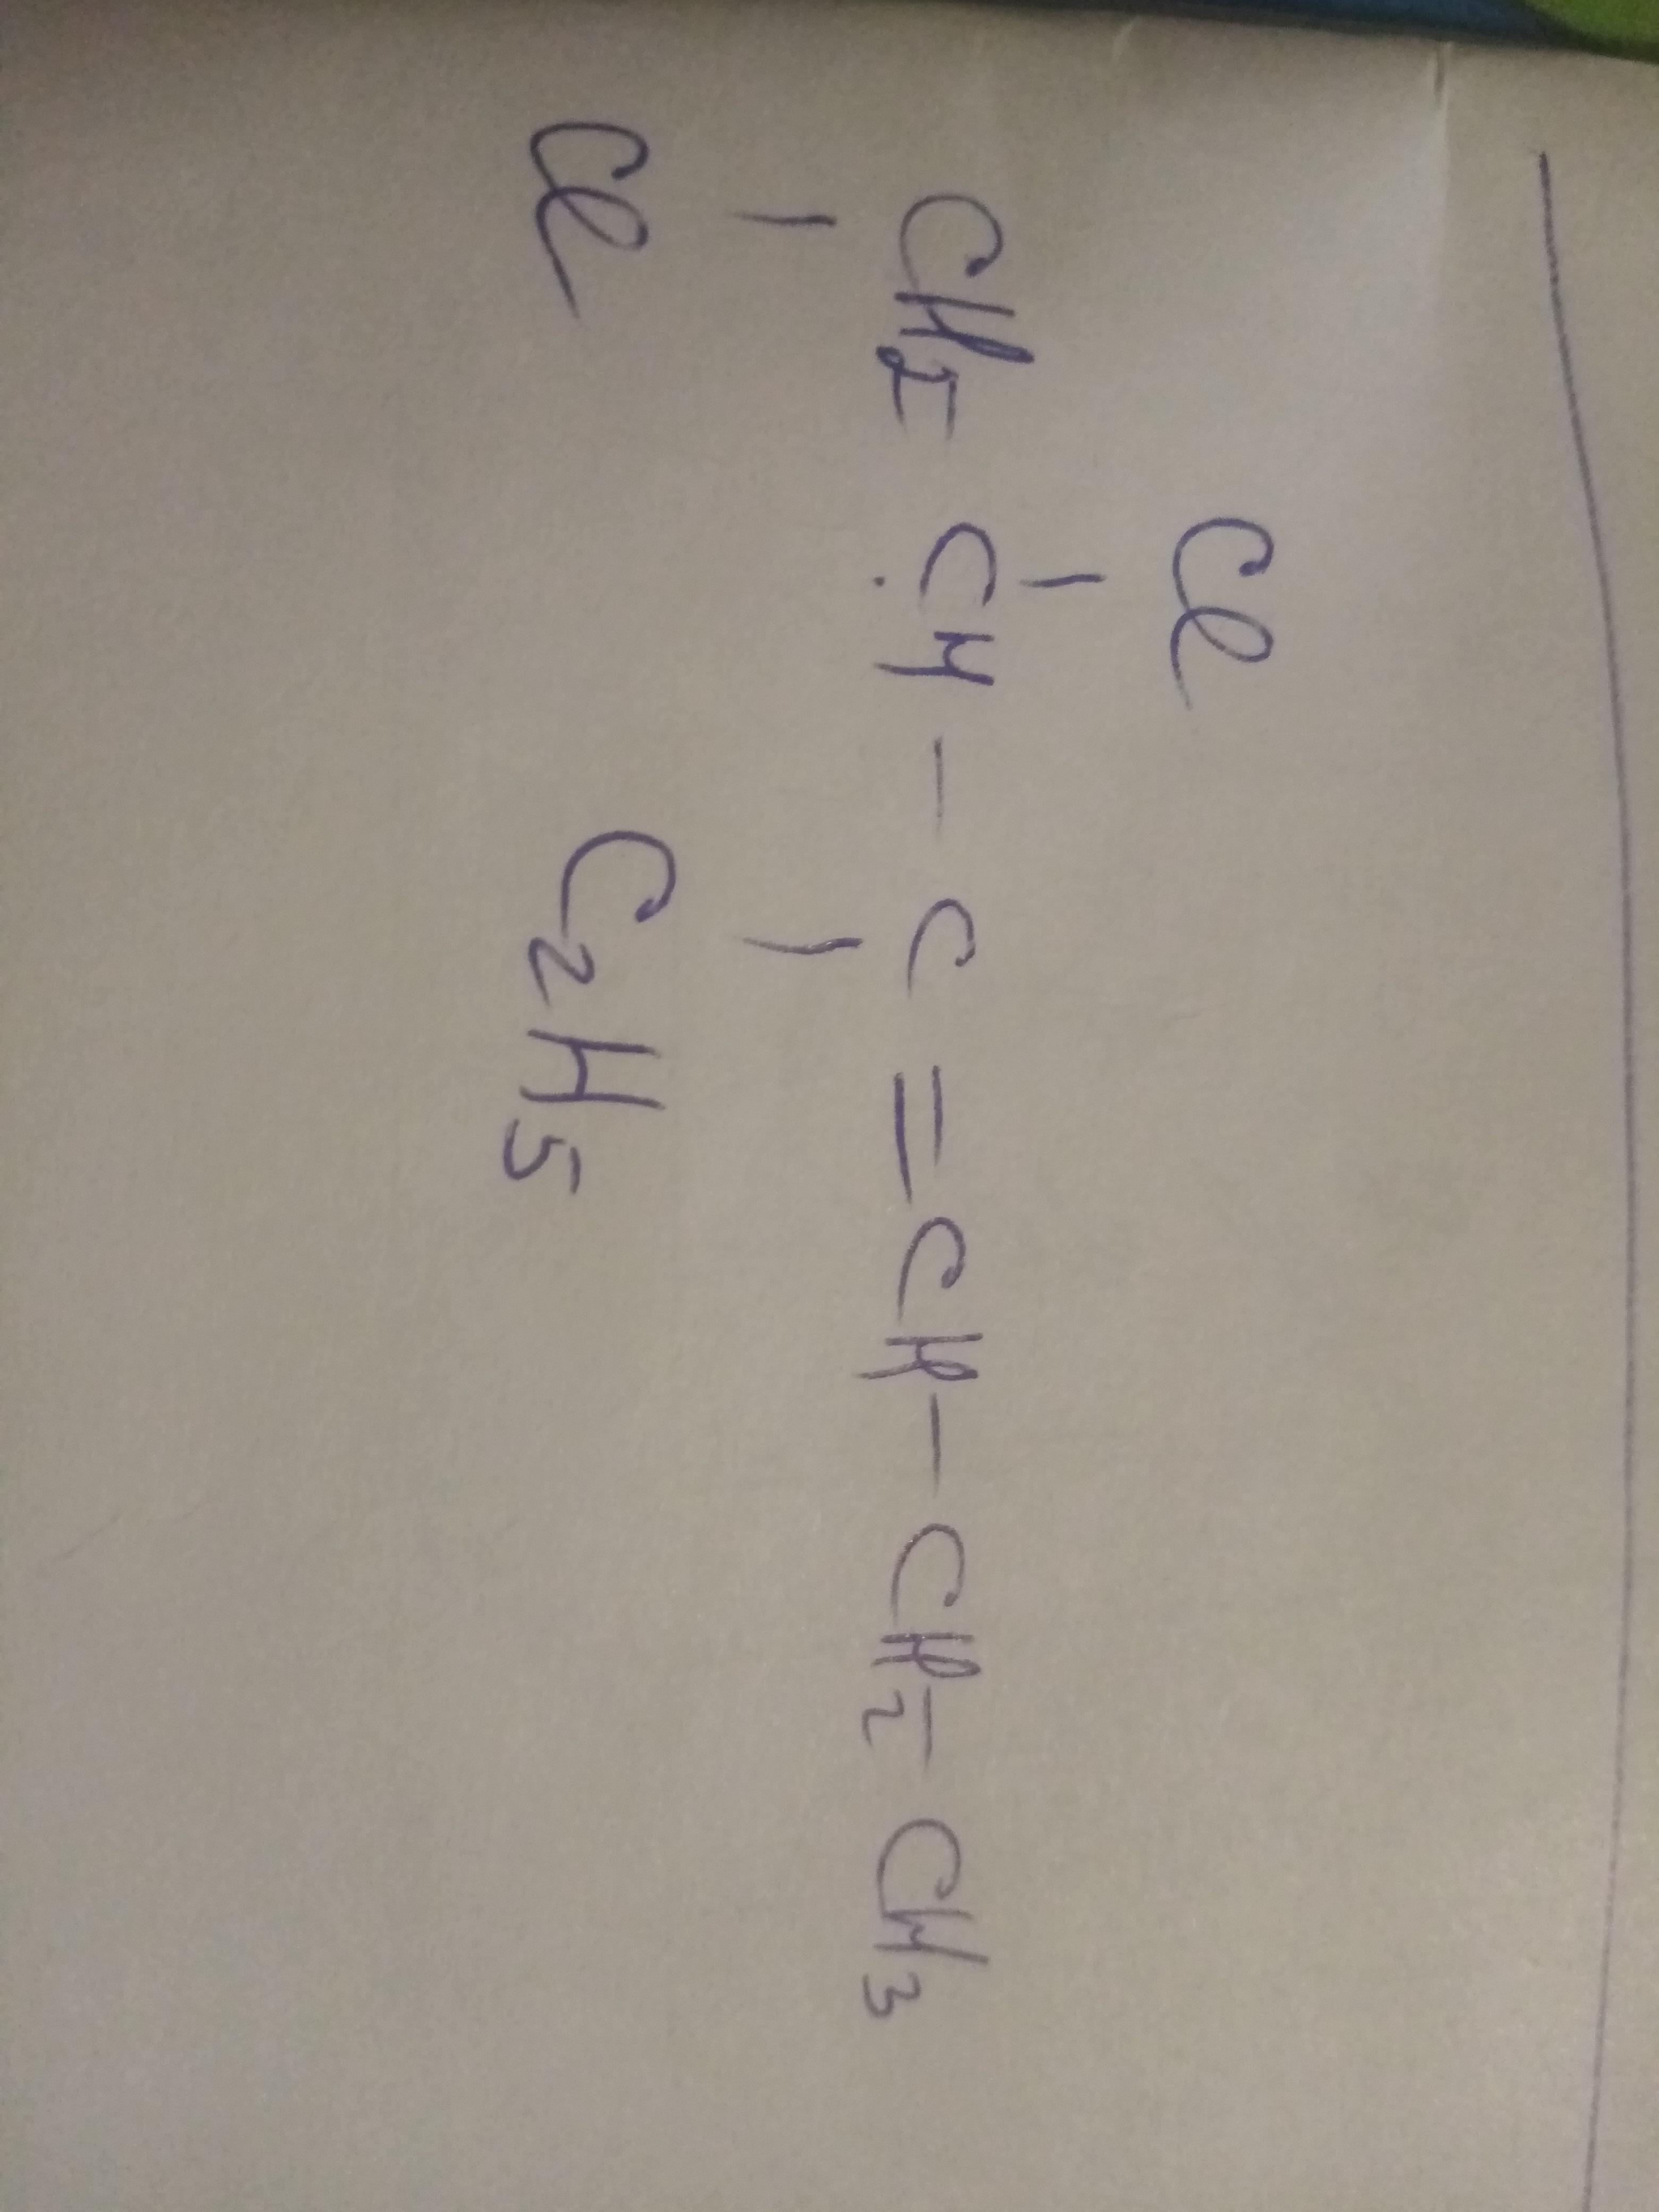 Cl
CH2 - CH - C = CH - CH2 - CH3
Cl C2H5